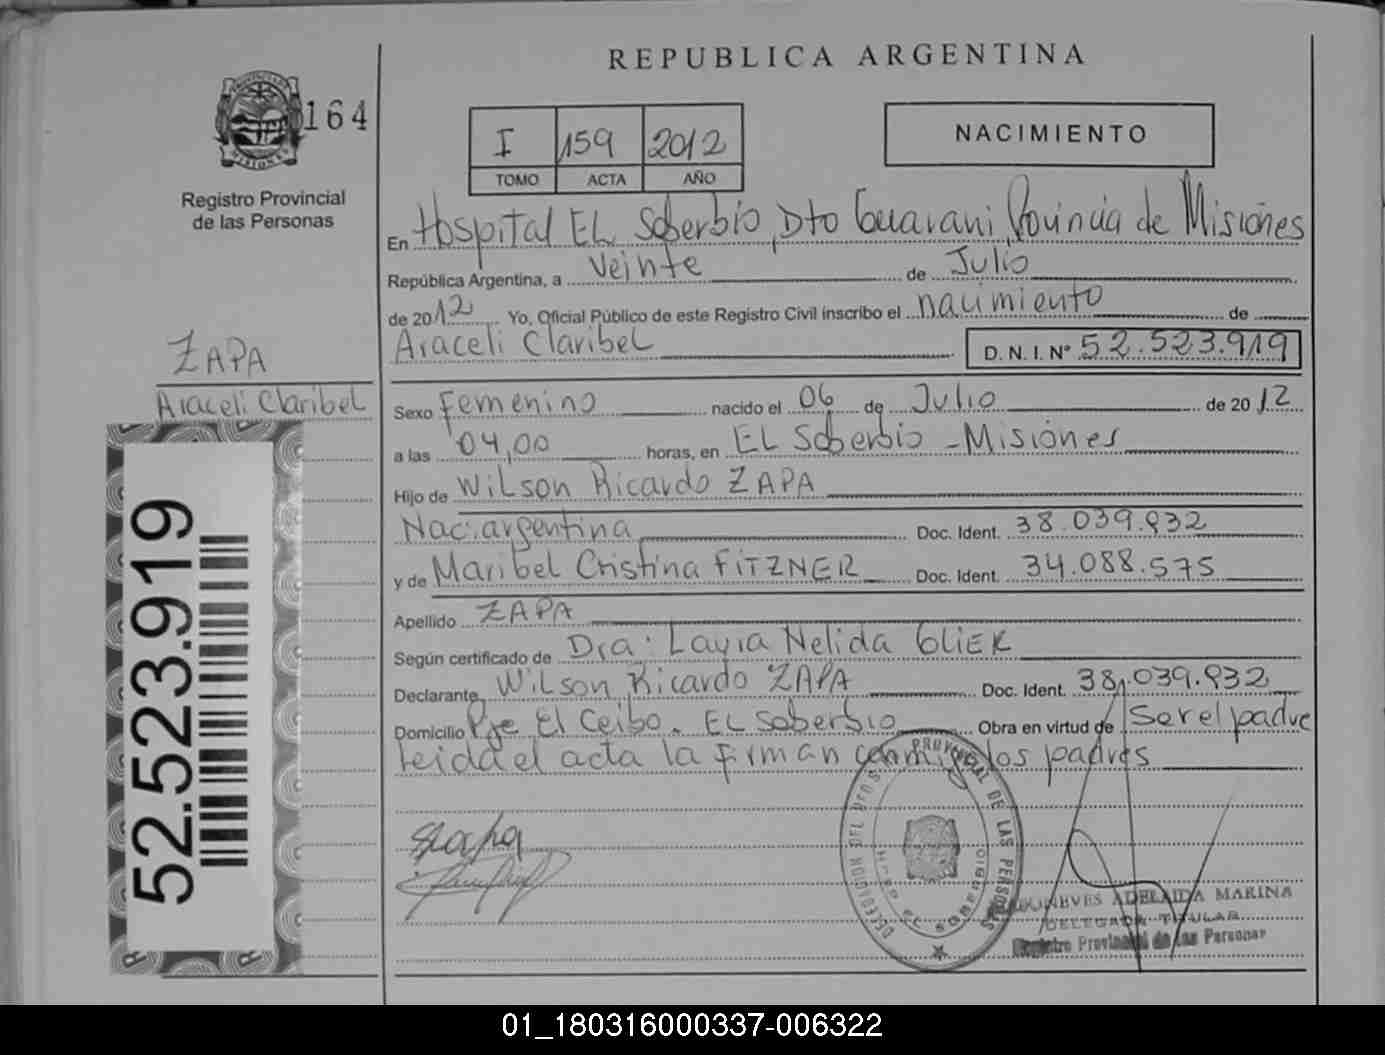 REPUBLICA ARGENTINA
164
MISIONES
Registro Provincial
de las Personas
I 159 2012
TOMO ACTA AÑO
NACIMIENTO
En Hospital EL Soberbio, Dto Guarani, Provincia de Misiones
República Argentina, a veinte de Julio
de 2012 Yo, Oficial Público de este Registro Civil inscribo el nacimiento de
Araceli Claribel D. N. I. Nº 52.523.919
ZAPA
Araceli Claribel
Sexo Femenino nacido el 06 de Julio de 2012
a las 04,00 horas, en EL Soberbio - Misiones
Hijo de Wilson Ricardo ZAPA
Nac: argentina Doc. Ident. 38.039.932
y de Maribel Cristina FITZNER Doc. Ident. 34.088.575
Apellido ZAPA
Según certificado de Dra: Laura Nelida GLIEK
Declarante Wilson Ricardo ZAPA Doc. Ident. 38.039.932
Domicilio Pje El Ceibo. EL Soberbio Obra en virtud de Ser el padre
Leida el acta la firman conmigo los padres
52.523.919
PROVINCIAL DE LAS PERSONAS
EL SOBERBIO
ADELAIDA MARINA
DELEGADA TITULAR
Registro Provincial de las Personas
01_180316000337-006322